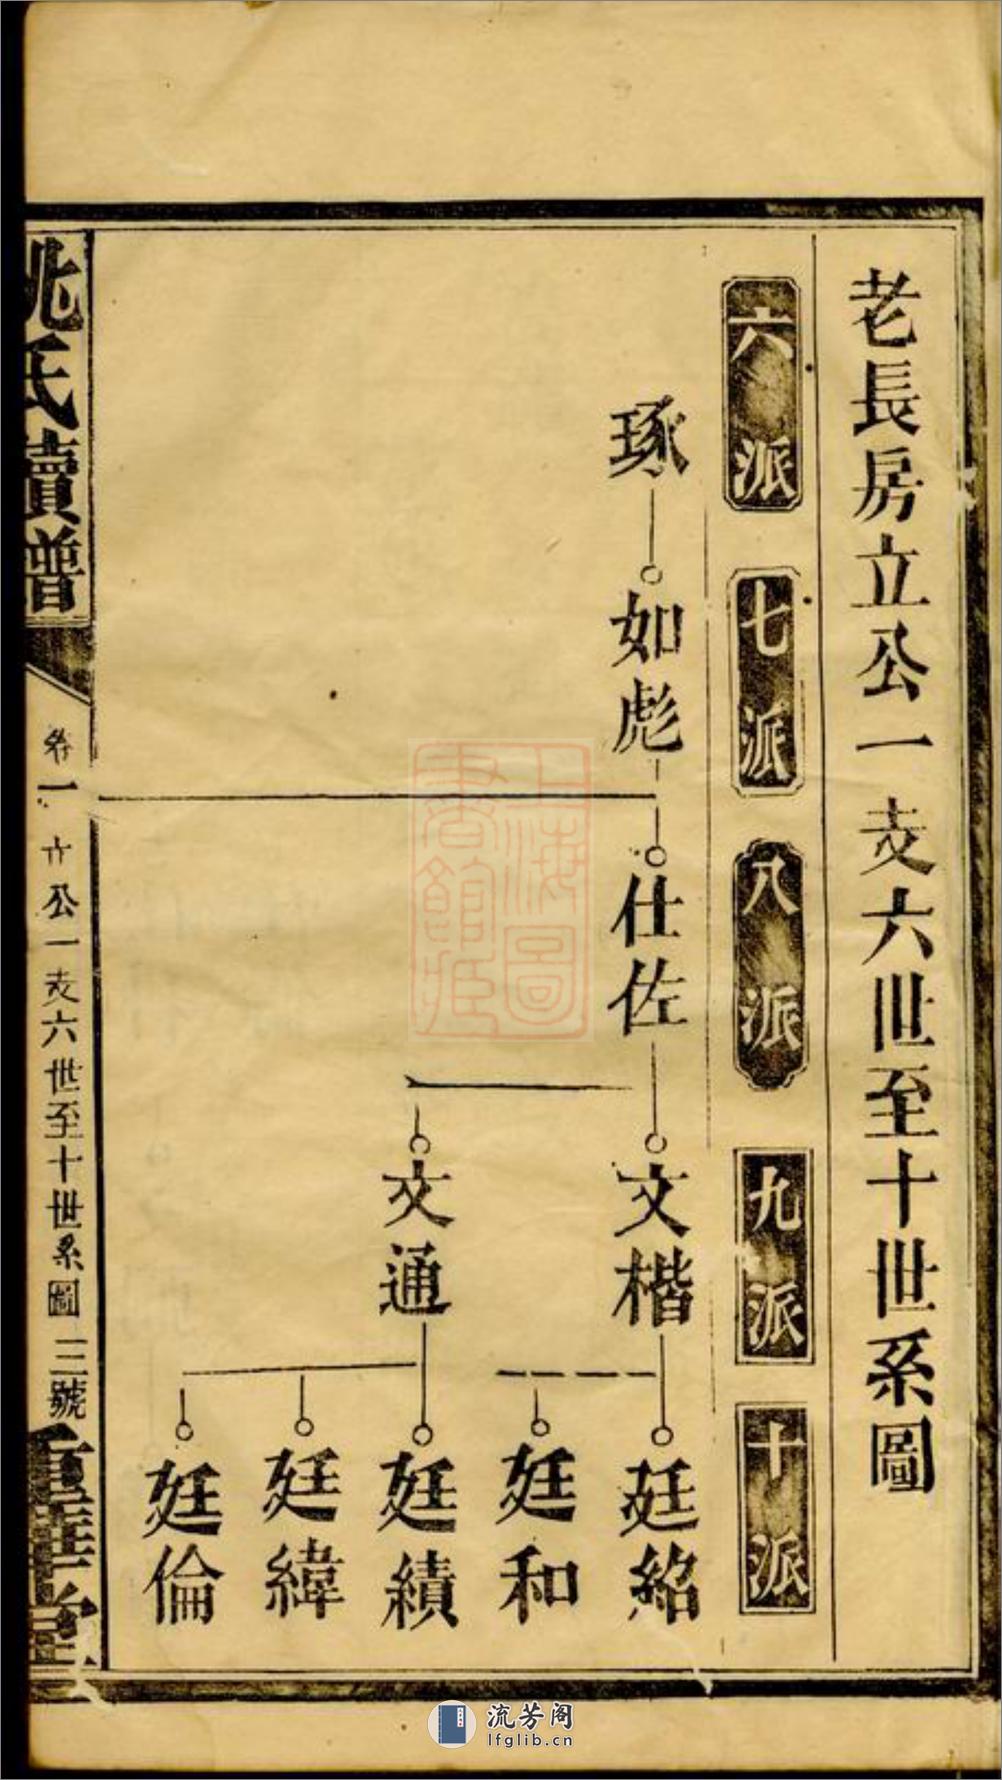 老長房立公一支六世至十世系圖
六派
七派
八派
九派
十派
琢
如彪
仕佐
文楷
文通
廷紹
廷和
廷績
廷緯
廷倫
姚氏續譜
卷一
立公一支六世至十世系圖
三號
重華堂
上海圖
書館藏
流芳阁
lfglib.cn